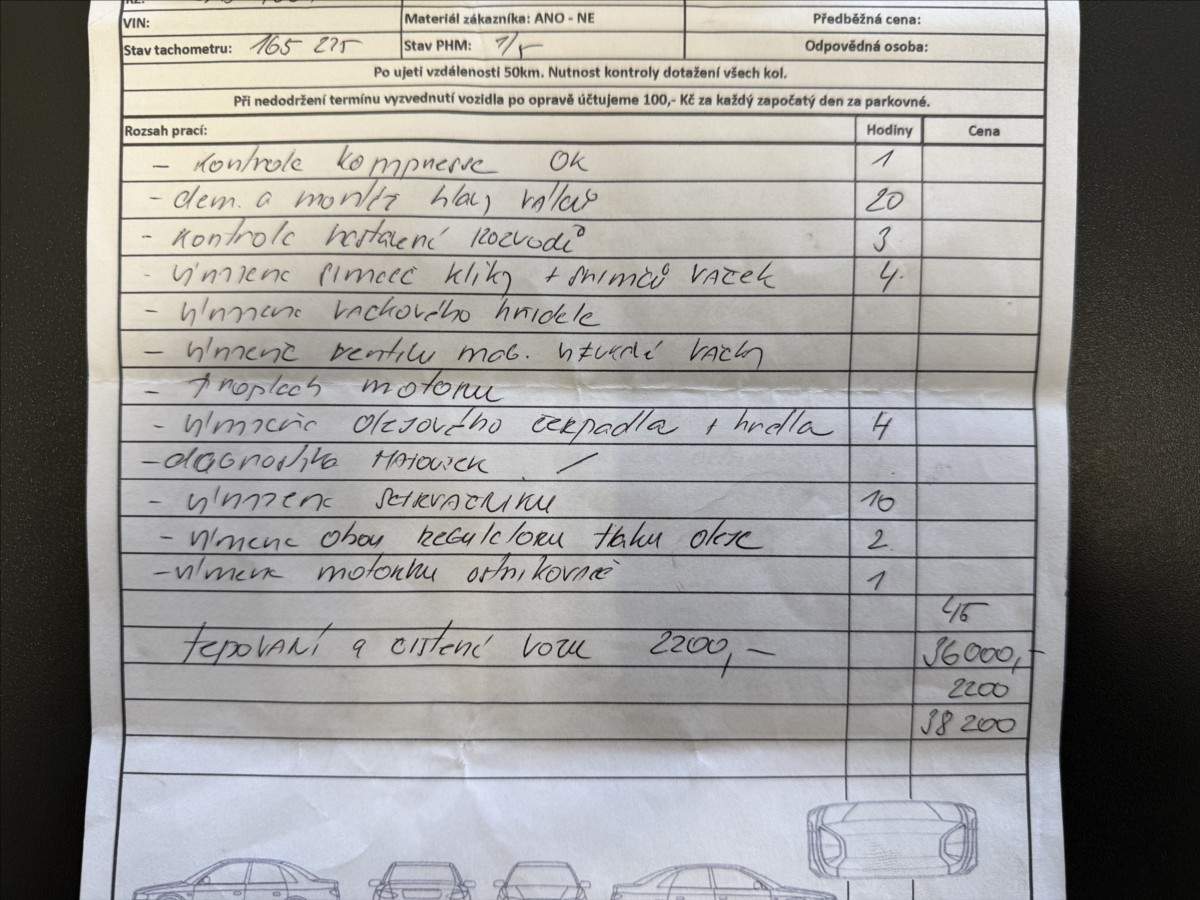 VIN:
Materiál zákazníka: ANO - NE
Předběžná cena:
Stav tachometru: 165 275
Stav PHM: 1/
Odpovědná osoba:
Po ujetí vzdálenosti 50km. Nutnost kontroly dotažení všech kol.
Při nedodržení termínu vyzvednutí vozidla po opravě účtujeme 100,- Kč za každý započatý den za parkovné.
Rozsah prací: Hodiny Cena
- kontrola kompresse OK 1
- dem. a montáž hlavy válců 20
- kontrola nastavení rozvodů 3
- výměna kliky + snímčů vaček 4
- výměna vačkového hřídele
- výměna ventilu vačky
- proplach motoru
- výměna olejového čerpadla + hrdla 4
- diagnostika /
- výměna 10
- výměna obou regulátorů tlaku oleje 2
- výměna motorku ostřikovače 1
45
tepování a čistení vozu 2200,- 36000,-
2200
38 200